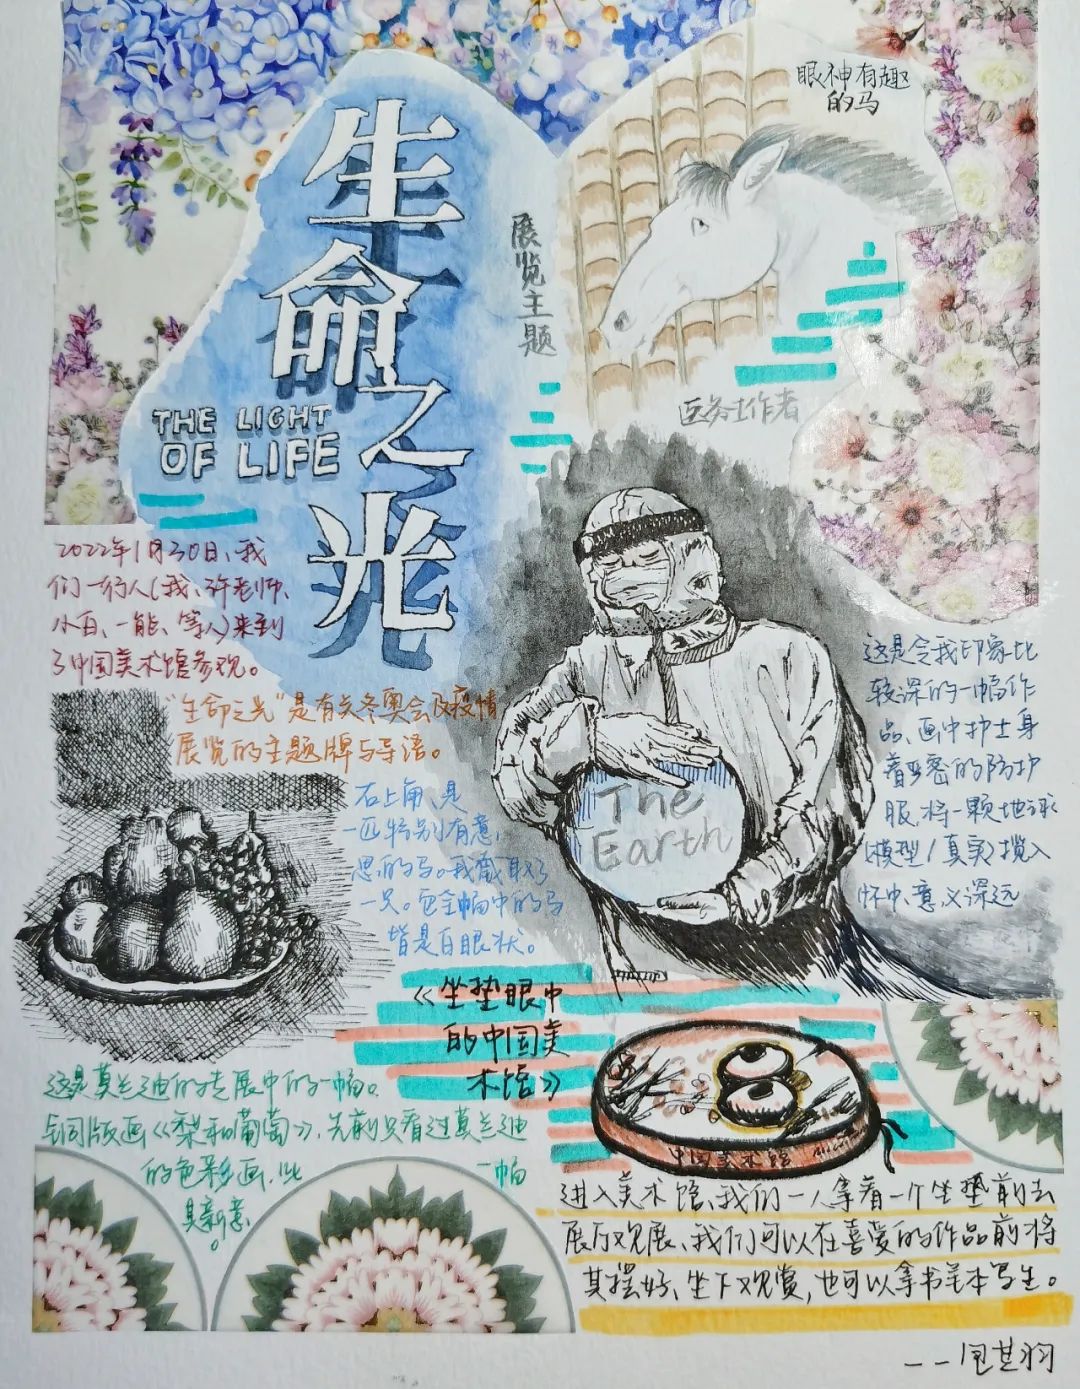 眼神有趣
的马
生命之光
展览主题
THE LIGHT
OF LIFE
医务工作者
2022年1月30日、我
们一行人(我、许老师、
小白、一能、等人)来到
了中国美术馆参观。
"生命之光"是有关冬奥会及疫情
展览的主题牌与导语。
右上角、是
一匹特别有意
思的马。我截取了
一只。它全幅中的马
皆是白眼状。
The
Earth
这是令我印象比
较深的一幅作
品、画中护士身
着严密的防护
服、将一颗地球
(模型/真实)揽入
怀中、意义深远
《坐垫眼中
的中国美
术馆》
中国美术馆
这是莫兰迪的特展中的一幅。
铜版画《梨和葡萄》、先前只看过莫兰迪
的色彩画、此一幅
具新意。
进入美术馆、我们一人拿着一个坐垫前去
展厅观展、我们可以在喜爱的作品前将
其摆好、坐下观赏，也可以拿书笔本写生。